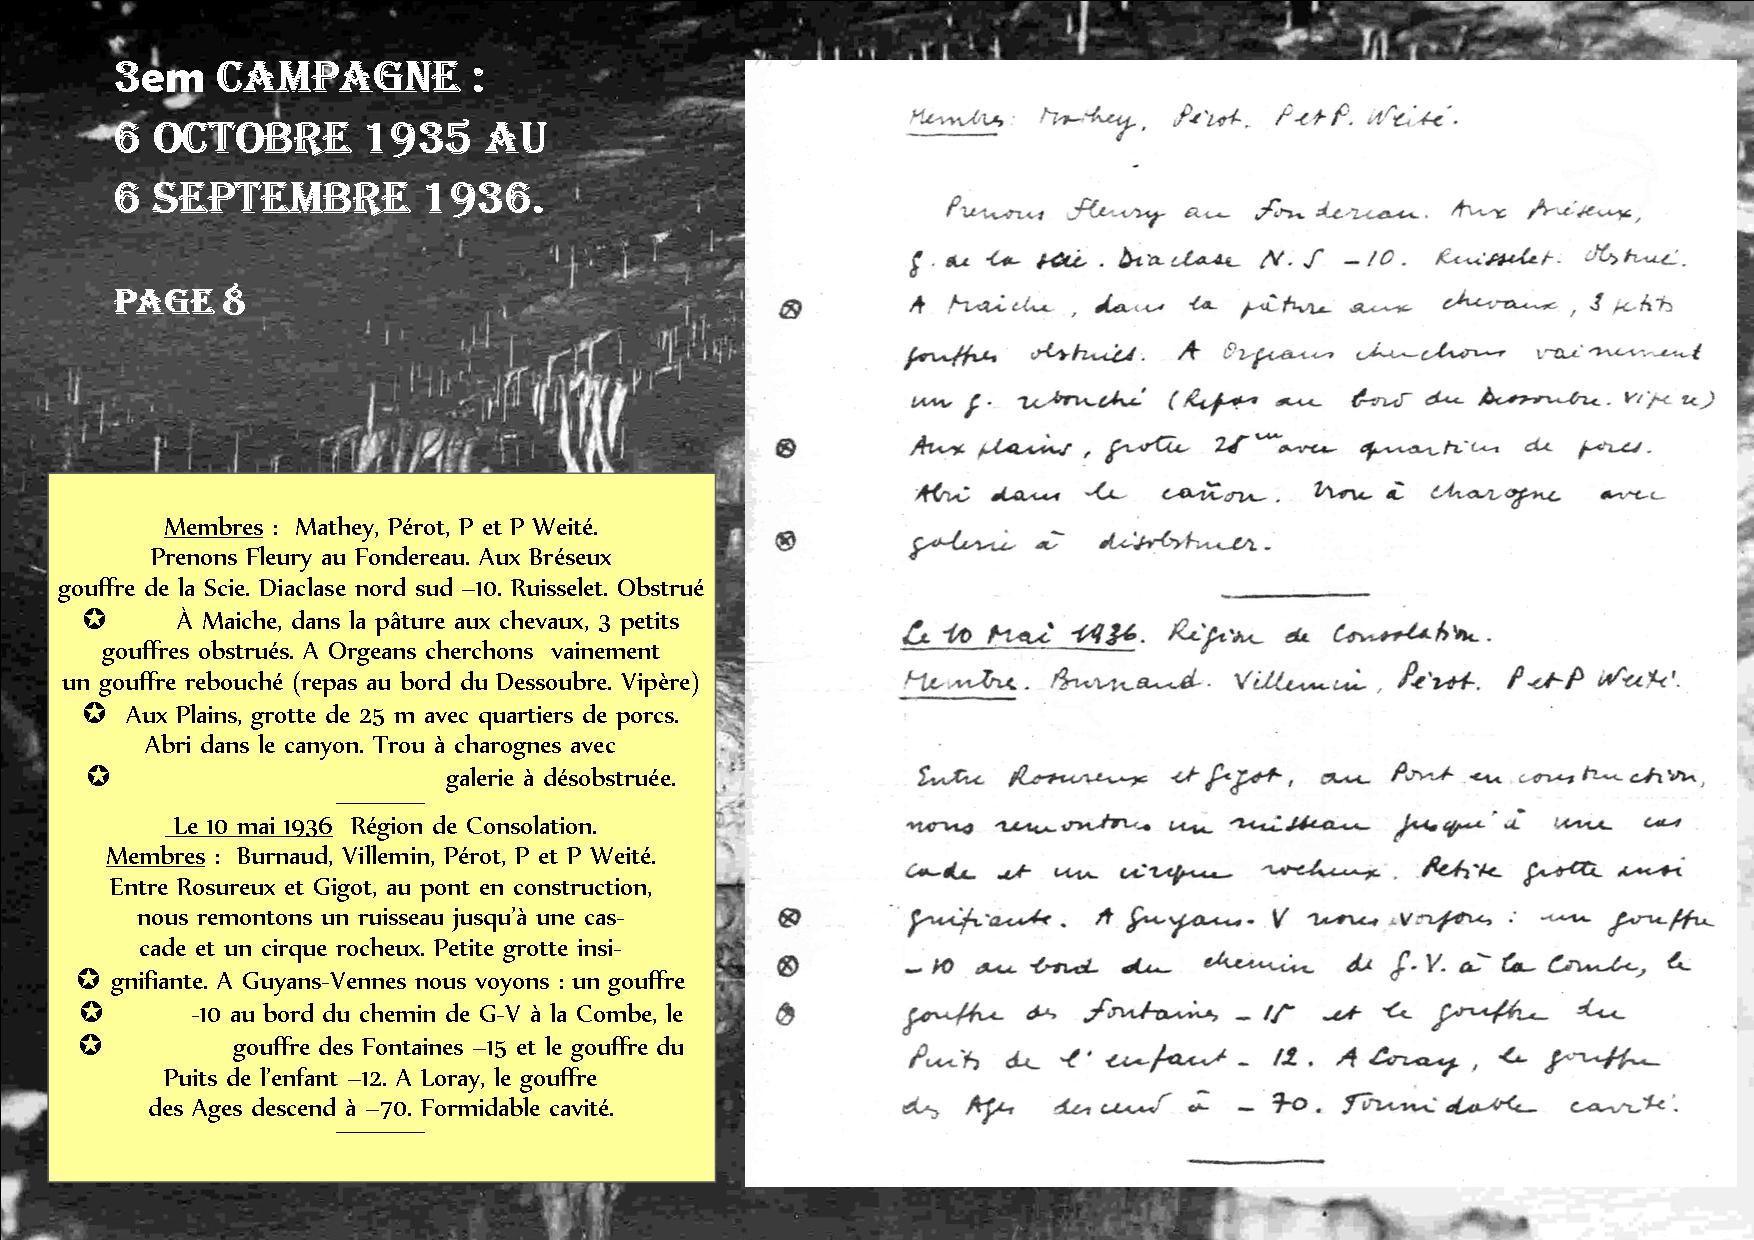 3em CAMPAGNE :
6 OCTOBRE 1935 AU
6 SEPTEMBRE 1936.
PAGE 8
Membres : Mathey, Pérot, P et P Weité.
Prenons Fleury au Fondereau. Aux Bréseux
gouffre de la Scie. Diaclase nord sud –10. Ruisselet. Obstrué
✪ À Maiche, dans la pâture aux chevaux, 3 petits
gouffres obstrués. A Orgeans cherchons vainement
un gouffre rebouché (repas au bord du Dessoubre. Vipère)
✪ Aux Plains, grotte de 25 m avec quartiers de porcs.
Abri dans le canyon. Trou à charognes avec
✪ galerie à désobstruée.
Le 10 mai 1936 Région de Consolation.
Membres : Burnaud, Villemin, Pérot, P et P Weité.
Entre Rosureux et Gigot, au pont en construction,
nous remontons un ruisseau jusqu'à une cas-
cade et un cirque rocheux. Petite grotte insi-
✪ gnifiante. A Guyans-Vennes nous voyons : un gouffre
✪ -10 au bord du chemin de G-V à la Combe, le
✪ gouffre des Fontaines –15 et le gouffre du
Puits de l'enfant –12. A Loray, le gouffre
des Ages descend à –70. Formidable cavité.
Membres : Mathey, Pérot. P et P. Weité.
Prenons Fleury au Fondereau. Aux Bréseux,
g. de la scie. Diaclase N. S –10. Ruisselet. Obstrué.
A Maiche, dans la pâture aux chevaux, 3 petits
gouffres obstrués. A Orgeans cherchons vainement
un g. rebouché (Repas au bord du Dessoubre. Vipère)
Aux plains, grotte 25 m avec quartiers de porcs.
Abri dans le cañon. Trou à charogne avec
galerie à désobstruer.
Le 10 Mai 1936. Région de Consolation.
Membre. Burnaud. Villemin, Pérot. P et P Weité.
Entre Rosureux et Gigot, au Pont en construction,
nous remontons un ruisseau jusqu'à une cas
cade et un cirque rocheux. Petite grotte insi
gnifiante. A Guyans-V nous voyons : un gouffre
–10 au bord du chemin de G.V. à la Combe, le
gouffre des Fontaines –15 et le gouffre du
Puits de l'enfant – 12. A Loray, le gouffre
des Ages descend à – 70. Formidable cavité.